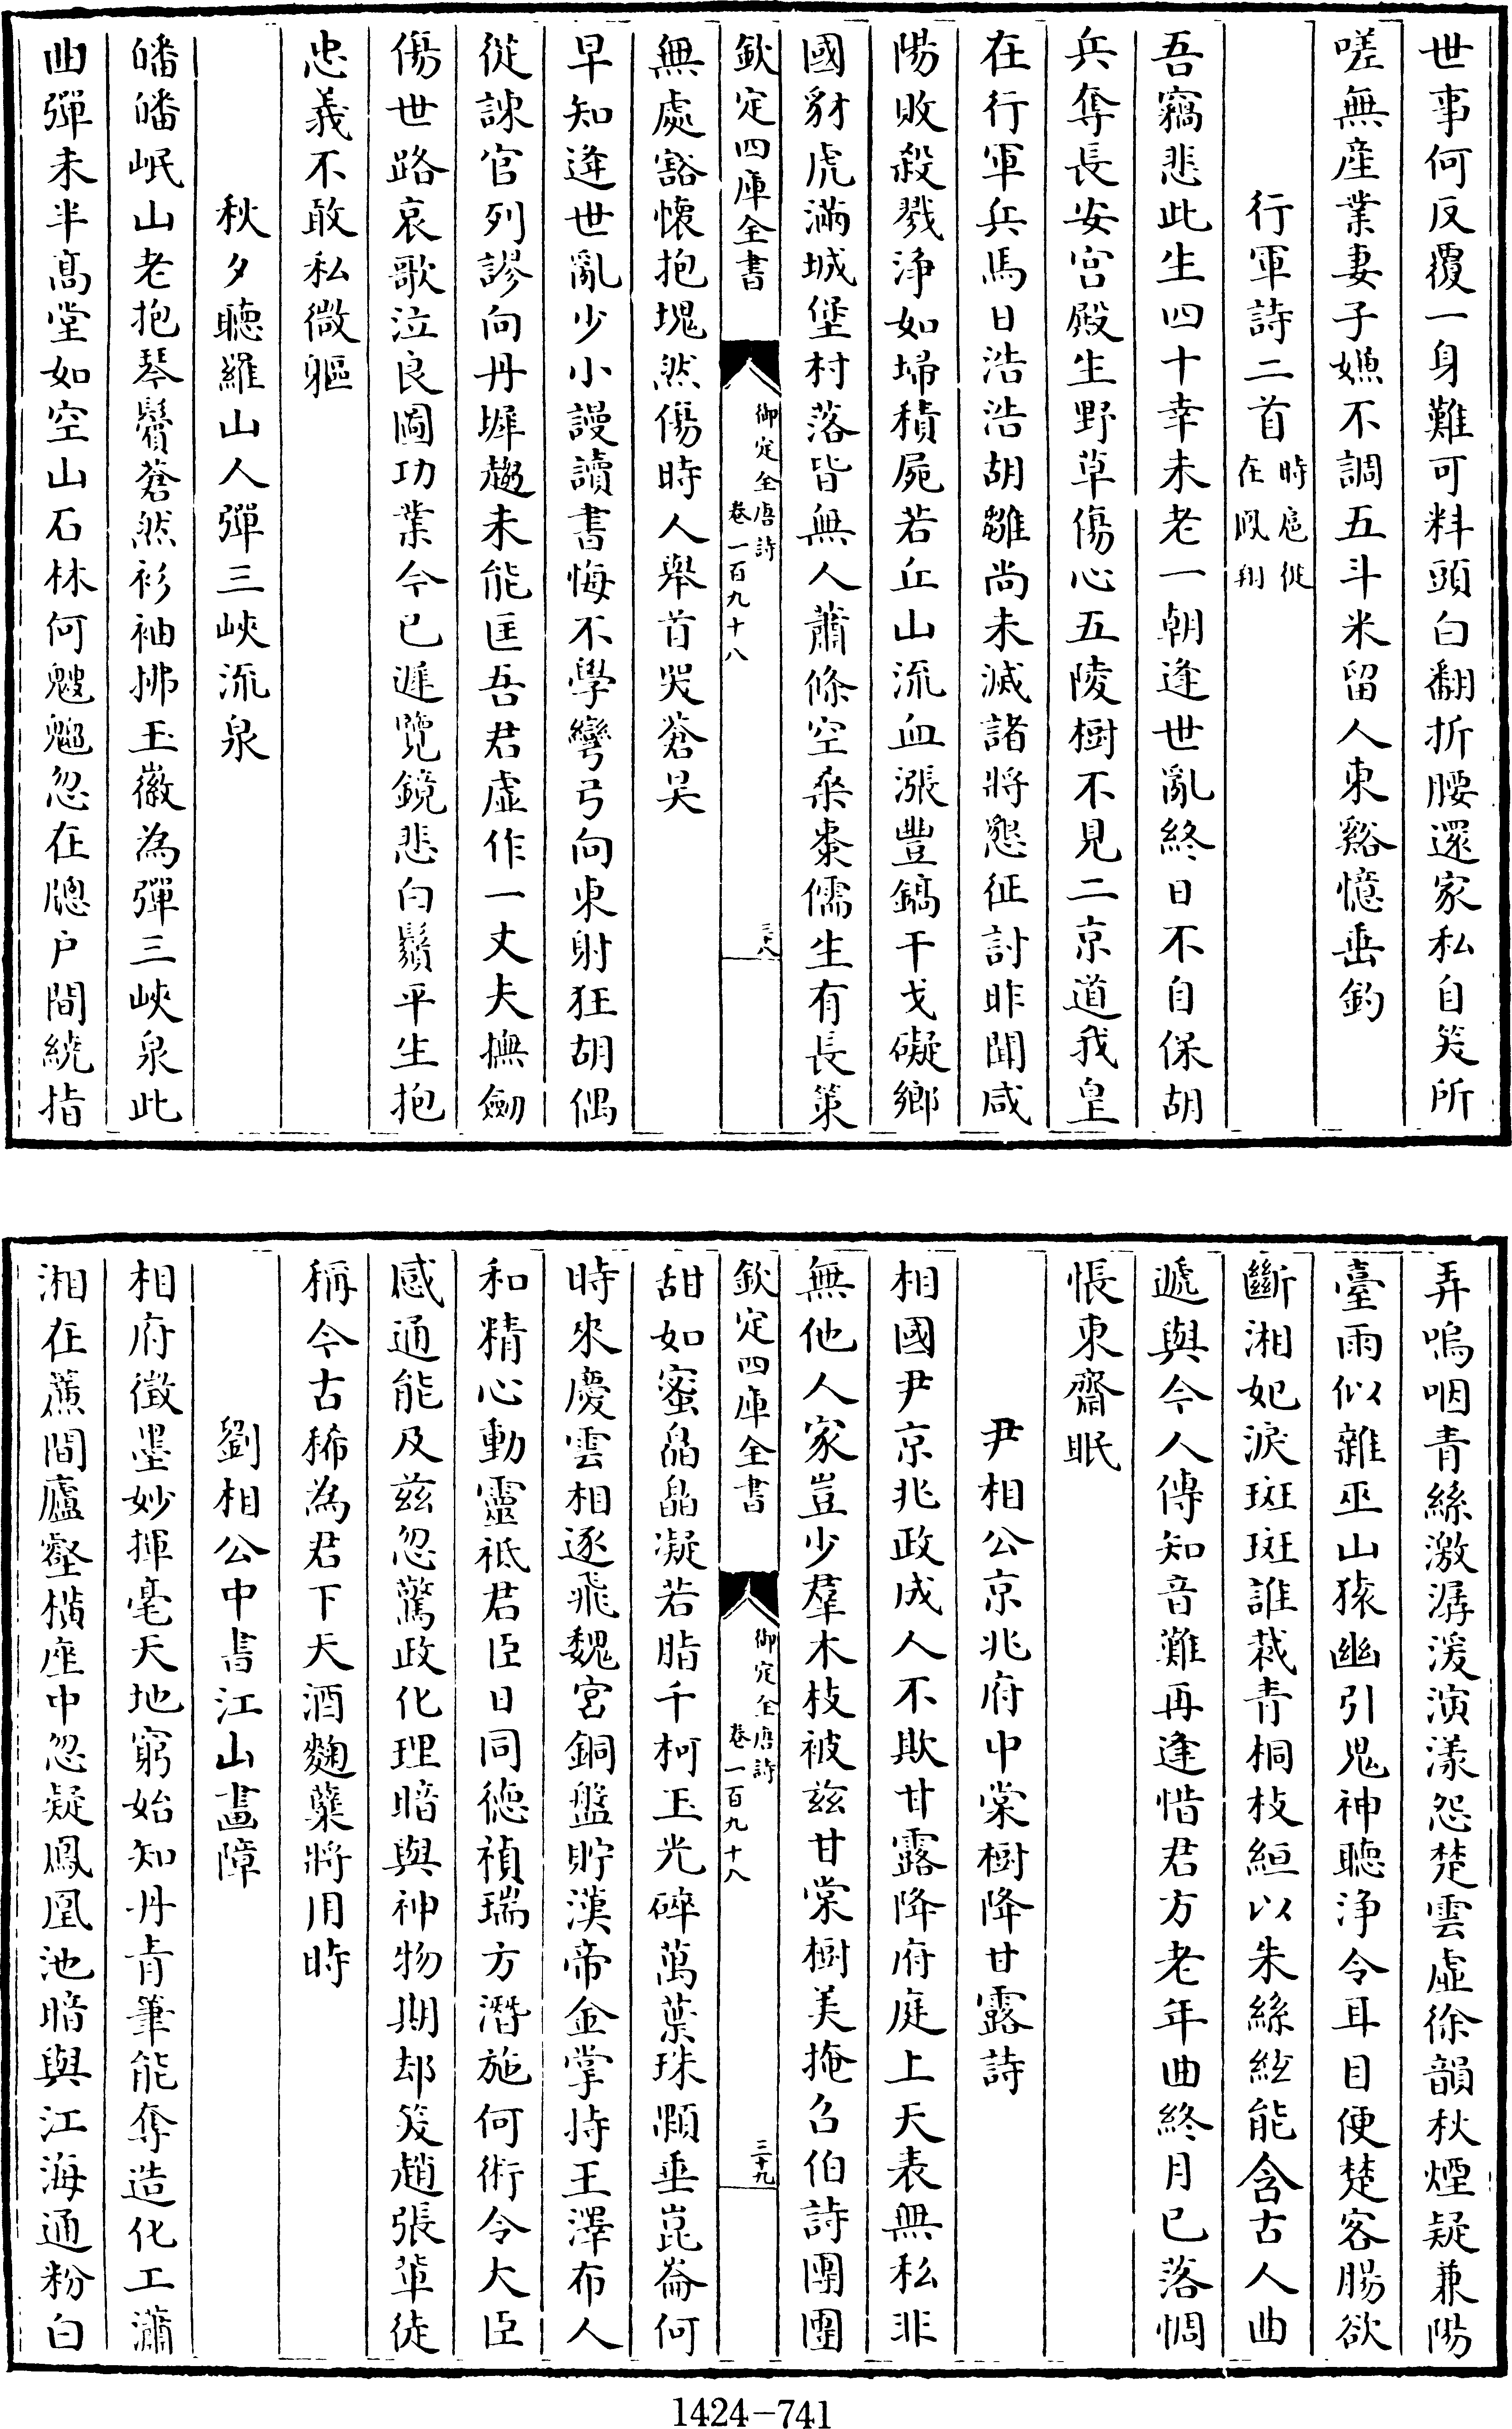 世事何反覆一身難可料頭白翻折腰還家私自笑所
嗟無産業妻子嫌不調五斗米留人東谿憶垂釣
行軍詩二首時扈從在鳳翔
吾竊悲此生四十幸未老一朝逢世亂終日不自保胡
兵奪長安宫殿生野草傷心五陵樹不見二京道我皇
在行軍兵馬日浩浩胡雛尚未滅諸將懇征討昨聞咸
陽敗殺戮浄如埽積屍若丘山流血漲豐鎬干戈礙鄉
國豺虎滿城堡村落皆無人蕭條空桑棗儒生有長策
無處豁懷抱塊然傷時人舉首哭蒼昊
早知逢世亂少小謾讀書悔不學彎弓向東射狂胡偶
從諫官列謬向丹墀趨未能匡吾君虛作一丈夫撫劒
傷世路哀歌泣良圖功業今已遲覽鏡悲白鬚平生抱
忠義不敢私微軀
秋夕聽羅山人彈三峽流泉
皤皤岷山老抱琴鬢蒼然衫袖拂玉徽為彈三峽泉此
曲彈未半髙堂如空山石林何颼飀忽在牕户間繞指
欽定四庫全書
御定全唐詩
卷一百九十八
三十八
弄嗚咽青絲激潺湲演漾怨楚雲虛徐韻秋煙疑兼陽
臺雨似雜巫山猿幽引鬼神聽浄令耳目便楚客腸欲
斷湘妃淚斑斑誰裁青桐枝絙以朱絲絃能含古人曲
遞與今人傳知音難再逢惜君方老年曲終月已落惆
悵東齋眠
尹相公京兆府中棠樹降甘露詩
相國尹京兆政成人不欺甘露降府庭上天表無私非
無他人家豈少羣木枝被兹甘棠樹美掩召伯詩團團
甜如蜜皛皛凝若脂千柯玉光碎萬葉珠顆垂崑崙何
時來慶雲相逐飛魏宫銅盤貯漢帝金掌持王澤布人
和精心動靈祗君臣日同德禎瑞方潛施何術令大臣
感通能及兹忽驚政化理暗與神物期却笑趙張輩徒
稱今古稀為君下天酒麴糵將用時
劉相公中書江山畫障
相府徵墨妙揮毫天地窮始知丹青筆能奪造化工瀟
湘在簾間廬壑横座中忽疑鳳凰池暗與江海通粉白
欽定四庫全書
御定全唐詩
卷一百九十八
三十九
1424-741